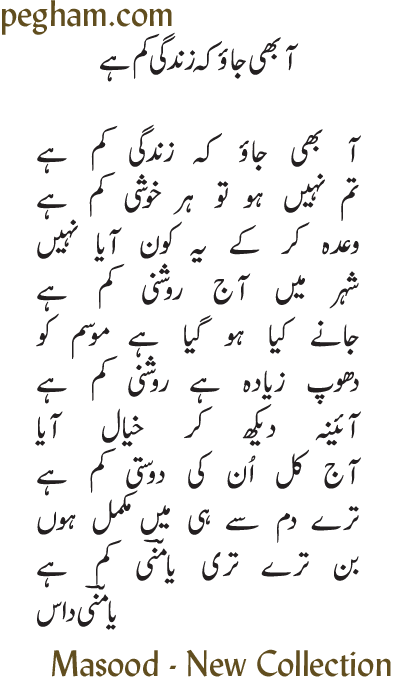 pegham.com
آ بھی جاؤ کہ زندگی کم ہے
آ بھی جاؤ کہ زندگی کم ہے
تم نہیں ہو تو ہر خوشی کم ہے
وعدہ کر کے یہ کون آیا نہیں
شہر میں آج روشنی کم ہے
جانے کیا ہو گیا ہے موسم کو
دھوپ زیادہ ہے روشنی کم ہے
آئینہ دیکھ کر خیال آیا
آج کل اُن کی دوستی کم ہے
ترے دم سے ہی میں مکمل ہوں
بن ترے تری یامنؔی کم ہے
یامنؔی داس
Masood - New Collection